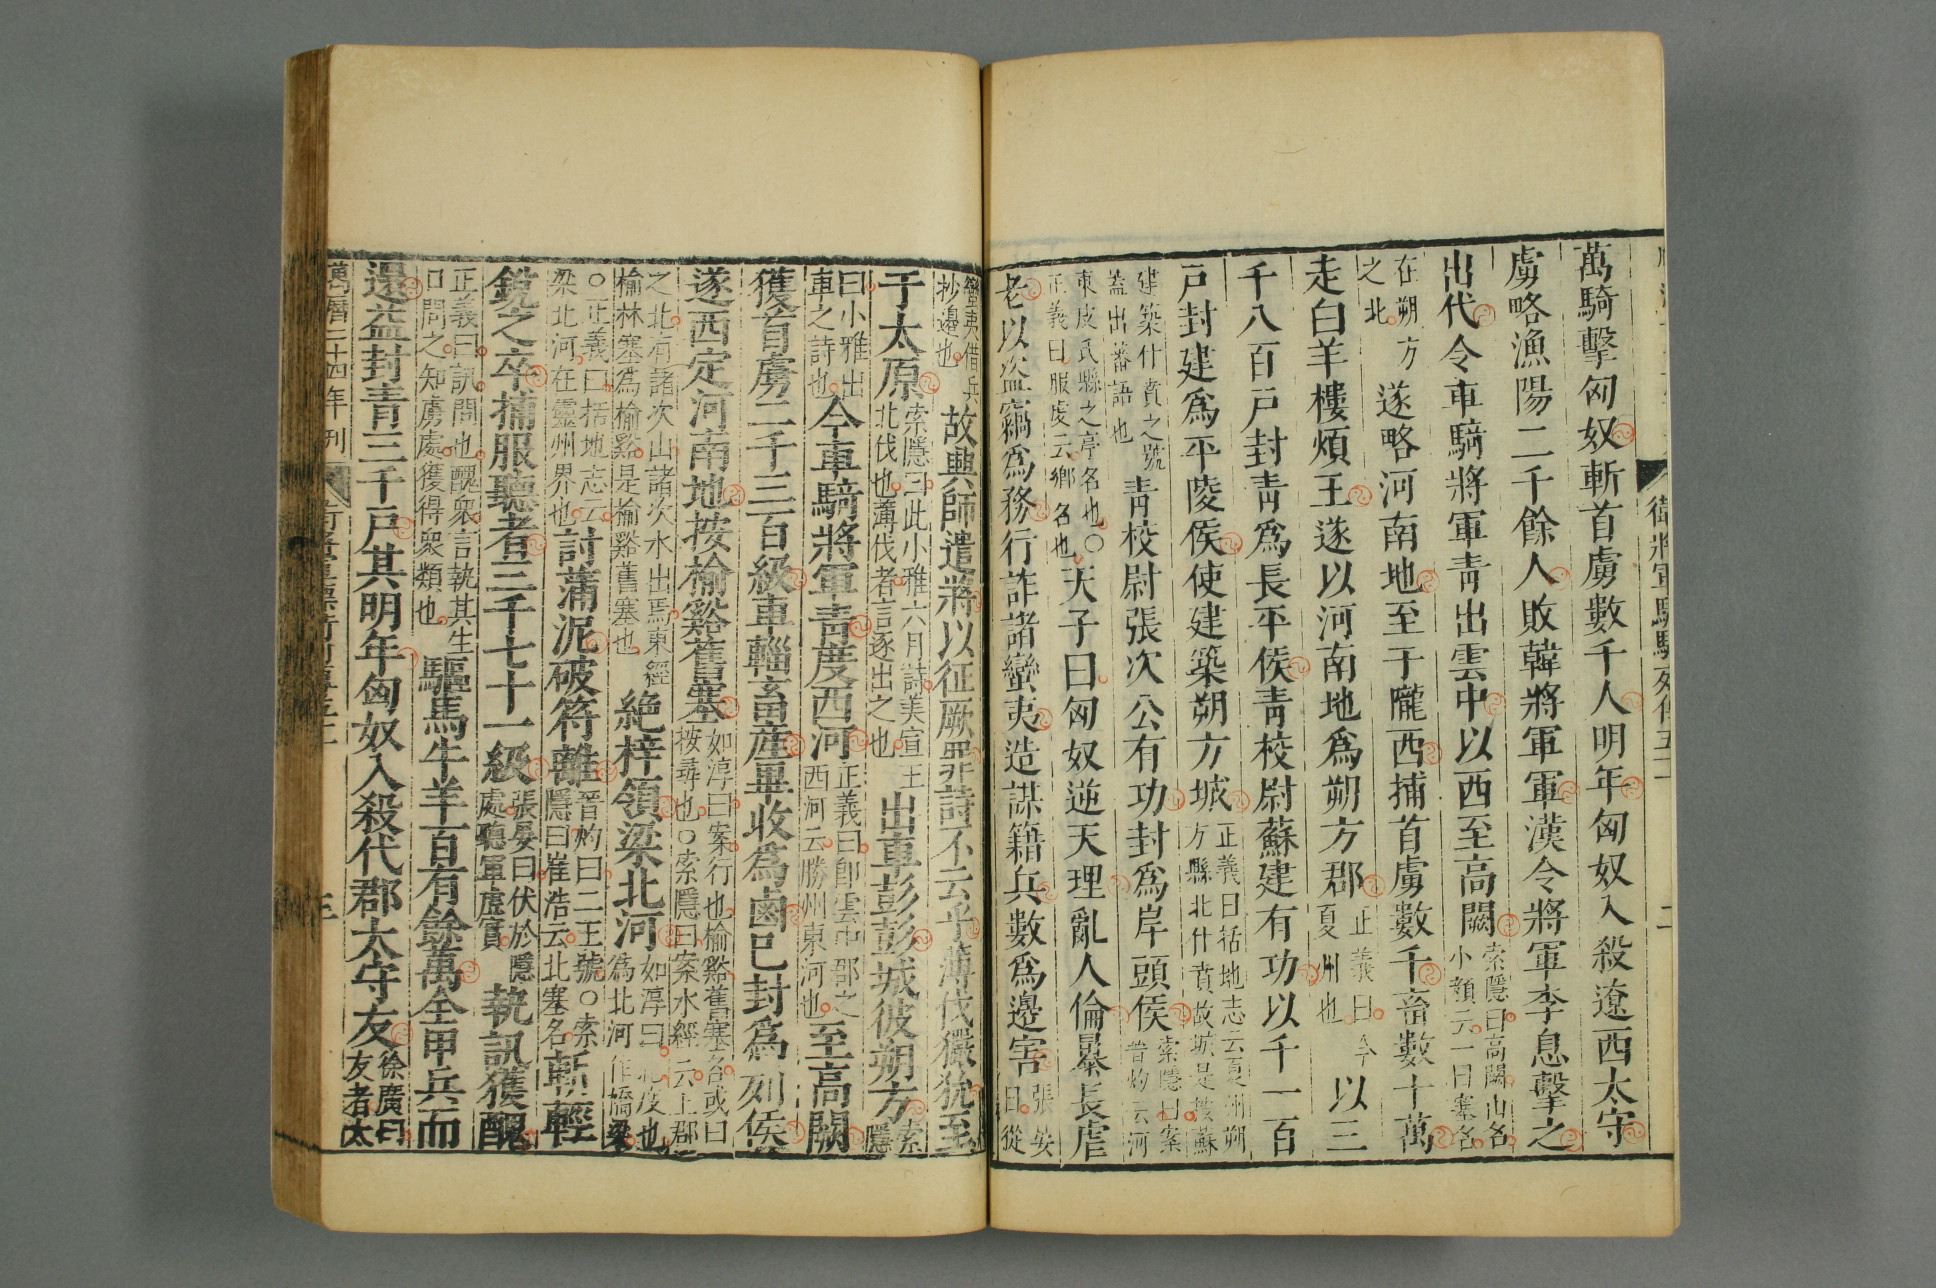 衛將軍驃騎列傳五十一 二
萬騎擊匈奴斬首虜數千人明年匈奴入殺遼西太守
虜略漁陽二千餘人敗韓將軍軍漢令將軍李息擊之
出代令車騎將軍青出雲中以西至高闕索隱曰高闕山名小顏云一曰塞名
在朔方之北遂略河南地至于隴西捕首虜數千畜數十萬
走白羊樓煩王遂以河南地爲朔方郡正義曰今夏州也以三
千八百戶封青爲長平侯青校尉蘇建有功以千一百
戶封建爲平陵侯使建築朔方城正義曰括地志云夏州朔方縣北什賁故城是按蘇
建築什賁之號蓋出蕃語也青校尉張次公有功封爲岸頭侯索隱曰案晉灼云河
東皮氏縣之亭名也○正義曰服虔云鄉名也天子曰匈奴逆天理亂人倫暴長虐
老以盜竊爲務行詐諸蠻夷造謀籍兵數爲邊害張晏曰從
蠻夷借兵抄邊也故興師遣將以征厥罪詩不云乎薄伐玁狁至
于太原索隱曰此小雅六月詩美宣王北伐也薄伐者言逐出之也出車彭彭城彼朔方索隱
曰小雅出車之詩也今車騎將軍青度西河正義曰卽雲中郡之西河云勝州東河也至高闕
獲首虜二千三百級車輜畜產畢收爲鹵已封爲列侯
遂西定河南地按榆谿舊塞如淳曰案行也榆谿舊塞名或曰按尋也○索隱曰案水經云上郡
之北有諸次山諸次水出焉東經榆林塞爲榆谿是榆谿舊塞也絕梓領梁北河如淳曰絕度也爲北河作橋梁
○正義曰括地志云梁北河在靈州界也討蒲泥破符離晉灼曰二王號○索隱曰崔浩云北塞名斬輕
銳之卒捕服聽者三千七十一級張晏曰伏於隱處聽軍虛實執訊獲醜
正義曰訊問也醜衆言執其生口問之知虜處獲得衆類也驅馬牛羊百有餘萬全甲兵而
還益封青三千戶其明年匈奴入殺代郡太守友徐廣曰友者太
萬曆二十四年刊 三